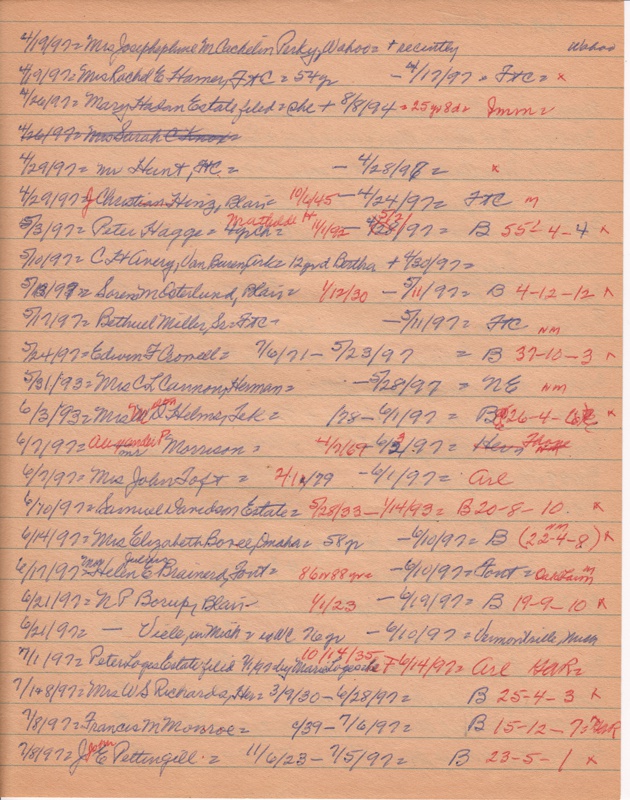 4/19/97= Mrs Josephephine M Aechelin Perky, Wahoo= + recently Wahoo
4/19/97= Mrs Rachel E Hamer, FtC = 54yr - 4/17/97 = FtC = x
4/26/97= Mary Hadan Estate filed = chc + 8/8/94 = 25yr 8da=
4/26/97= Mrs Sarah C Knox=
4/29/97= mr Hunt, FtC = - 4/28/97 = x
4/29/97= J Christian Hinz, Blair= 10/6/45 - 4/24/97= FtC m
5/3/97= Peter Hagge= Mathilde H 11/1/92 - 5/2/97= B 55-4-4 x
5/10/97= C H Avery, Van Buren Ark= 12yrd Bertha + 4/30/97=
5/13/97= Soren M Osterlund, Blair= 4/12/30 - 5/11/97= B 4-12-12 x
5/17/97= Bethuel Miller, Sr= FtC- - 5/11/97= FtC nm
5/24/97= Edwin F Crowell= 7/6/71 - 5/23/97 = B 37-10-3 x
5/31/93= Mrs C L Cannon, Herman= - 5/28/97 = NE nm
6/3/93= Mrs M O Helms, Tek= /78 - 6/1/97= B 26-4-
6/7/97= Alexander P. Morrison= 4/7/69 - 6/3/97=
6/7/97= Mrs John Toft= 2/1/79 - 6/1/97= Arl
6/70/97= Samuel Davidson Estate= 5/28/33 - 1/14/93= B 20-8-10. x
6/14/97= Mrs Elizabeth Bovee, Omaha= 58yr - 6/10/97= B (22-4-8) nm x
6/17/97= Mrs Helen E Brainerd, Font= 86 or 88yr= - 6/10/97= Font =
6/21/97= N P Borup, Blair- 4/1/23 - 6/19/97= B 19-9-10 x
6/21/97= — Viele, in Mich = in WC 76yr - 6/10/97= Vermontville, Mich
7/1/97= Peter Loges Estate filed 7/1/97 by Marie Loges 10/14/35 - 6/14/97= Arl
7/1&8/97= Mrs W S Richards, Her= 3/9/30 - 6/28/97= B 25-4-3 x
7/8/97= Francis M Monroe= c/39 - 7/6/97= B 15-12-7
7/8/97= John E Pettingill= 11/6/23 - 7/5/97= B 23-5-1 x